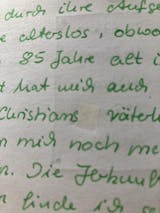 durch ihre Aufge
e alterslos, obwo
85 Jahre alt i
t hat mich auch
Christians väterl
n mich noch me
n. Die Herkunf
n finde ich s